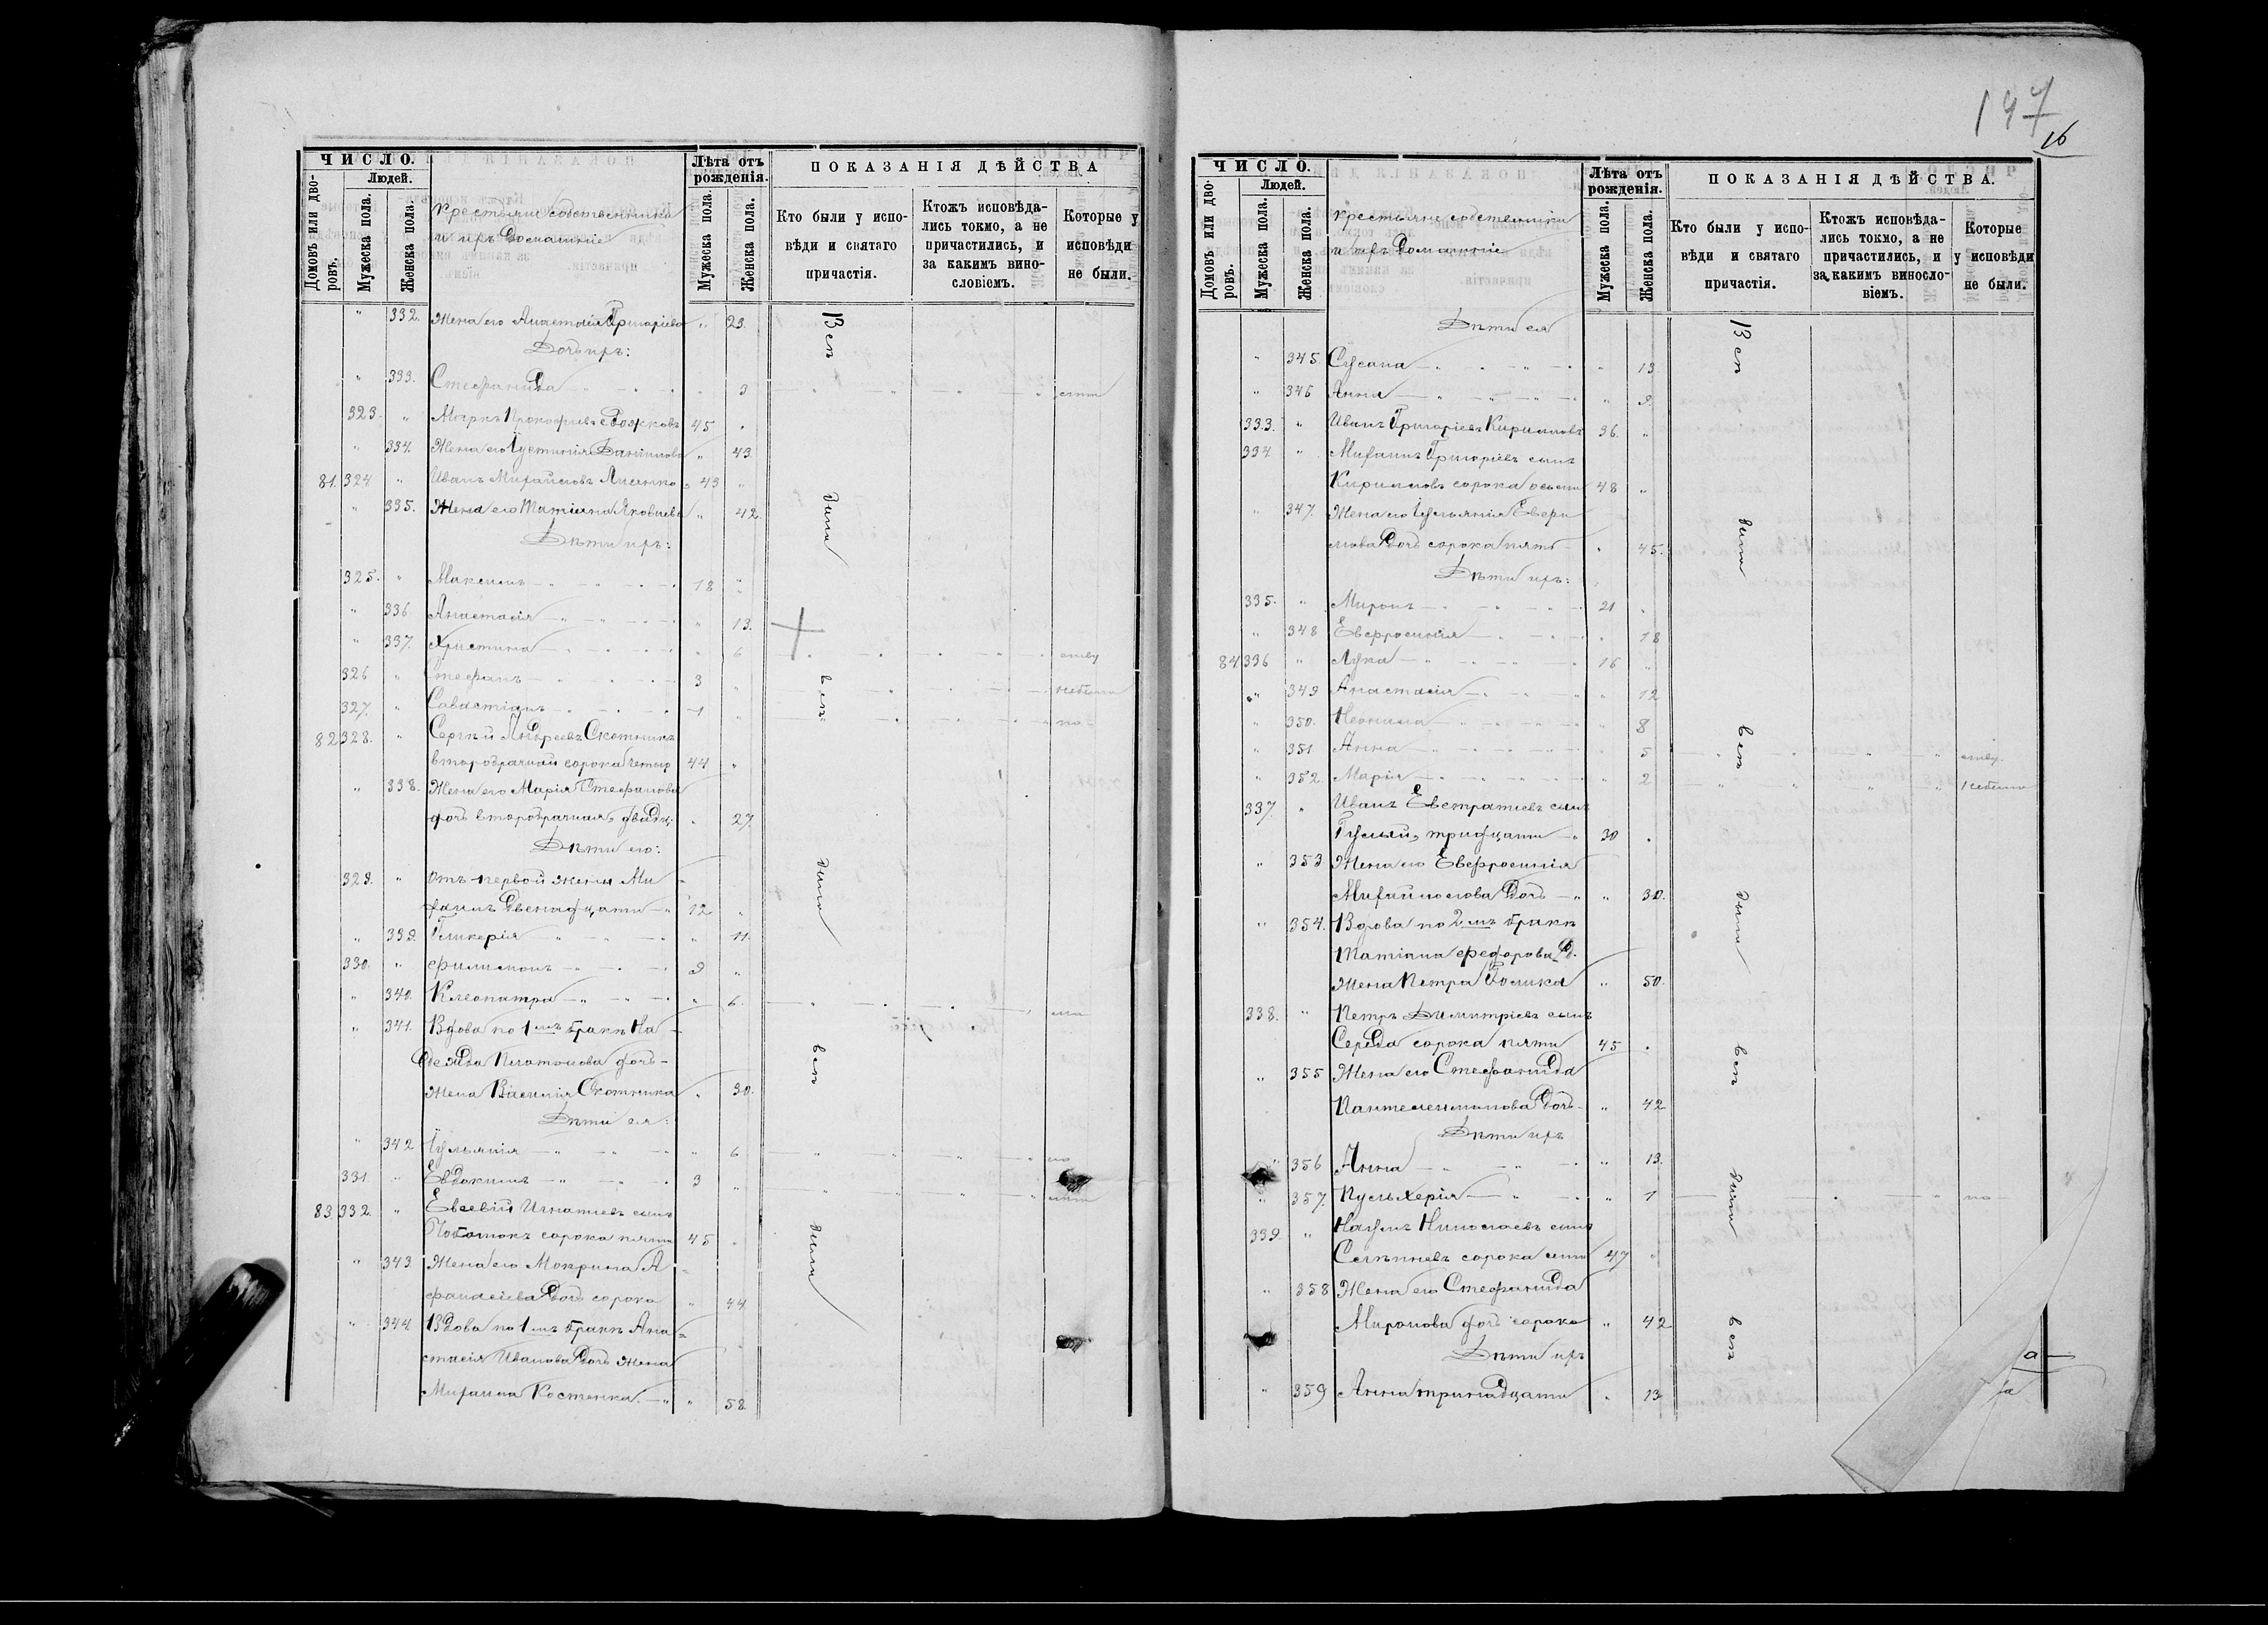 ЧИСЛО.
Людей.
Домовъ или дворовъ.
Мужеска пола.
Женска пола.
Крестьяне собственники
и ихъ домашніе
Лѣта отъ рожденія.
Мужеска пола.
Женска пола.
ПОКАЗАНІЯ ДѢЙСТВА
Кто были у исповѣди и святаго причастія.
Ктожъ исповѣдались токмо, а не причастились, и за какимъ винословіемъ.
Которые у исповѣди не были.
" 332. Жена его Анастасія Григоріева " 23.
Дочь ихъ:
" 333. Стефанида 3
323. " Маркъ Прокофіевъ 45 "
" 334. Жена его Іустинія Даніилова " 43.
81. 324. " Иванъ Михайловъ 43 "
" 335. Жена его Татіана Яковлева " 42.
Дѣти ихъ:
325. " Максимъ 18 "
" 336. Анастасія " 13.
" 337. Христина " 6
326 " Стефанъ 3 "
327. " Савастіанъ 1 "
82 328. " Сергѣй Андреевъ Скотникъ
второбрачный сорока четыр 44 "
" 338. Жена его Марія Стефанова
дочь второбрачная, двадц. " 27.
Дѣти его:
329. " отъ первой жены Ми-
хаилъ двенадцати 12 "
" 339. Гликерія " 11.
330. " Филимонъ 9 "
" 340. Клеопатра " 6.
" 341. Вдова по 1мъ бракѣ На-
дежда Платонова дочь
жена Василія Скотника " 30.
Дѣти ея:
" 342 Іульянія " 6
331 " Евдокимъ 3 "
83. 332. " Евсевій Игнатіевъ сынъ
сорока пяти 45 "
" 343 Жена его Мокрина А-
фанасіева дочь сорока " 44
" 344 Вдова по 1мъ бракѣ Ана-
стасія Иванова дочь жена
Михаила Костенка " 58
Всѣ были всѣ были всѣ были
147
16
ЧИСЛО.
Людей.
Домовъ или дворовъ.
Мужеска пола.
Женска пола.
Крестьяне собственники
и ихъ домашніе
Лѣта отъ рожденія.
Мужеска пола.
Женска пола.
ПОКАЗАНІЯ ДѢЙСТВА.
Кто были у исповѣди и святаго причастія.
Ктожъ исповѣдались токмо, а не причастились, и за какимъ винословіемъ.
Которые у исповѣди не были.
Дѣти ея
" 345. Сусана " 13
" 346 Анна " 9.
333. " Иванъ Григоріевъ Кирилловъ 36. "
334 " Михаилъ Григоріевъ сынъ
Кирилловъ сорока осьми 48 "
" 347. Жена его Іульянія
дочь сорока пять " 45.
Дѣти ихъ:
335. " Миронъ 21 "
" 348 Евфросинія " 18
84 336 " Лука 16 "
" 349 Анастасія " 12
" 350. Неонила " 8
" 351 Анна " 5
" 352. Марія " 2
337. " Иванъ Евстратіевъ сынъ
тридцати 30 "
" 353 Жена его Евфросинія
дочь " 30.
" 354. Вдова по 2мъ бракѣ
Татіана Федорова д.
жена Петра " 50.
338. " Петръ Димитріевъ сынъ
Середа сорока пяти 45 "
" 355 Жена его Стефанида
Пантелеимонова дочь " 42
Дѣти ихъ
" 356 Анна " 13.
" 357. Пульхерія " 1
339. " Наумъ Николаевъ сынъ
сорока семи 47 "
" 358 Жена его Стефанида
Миронова дочь сорока " 42
Дѣти ихъ
" 359 Анна тринадцати " 13
Всѣ были всѣ были всѣ были всѣ